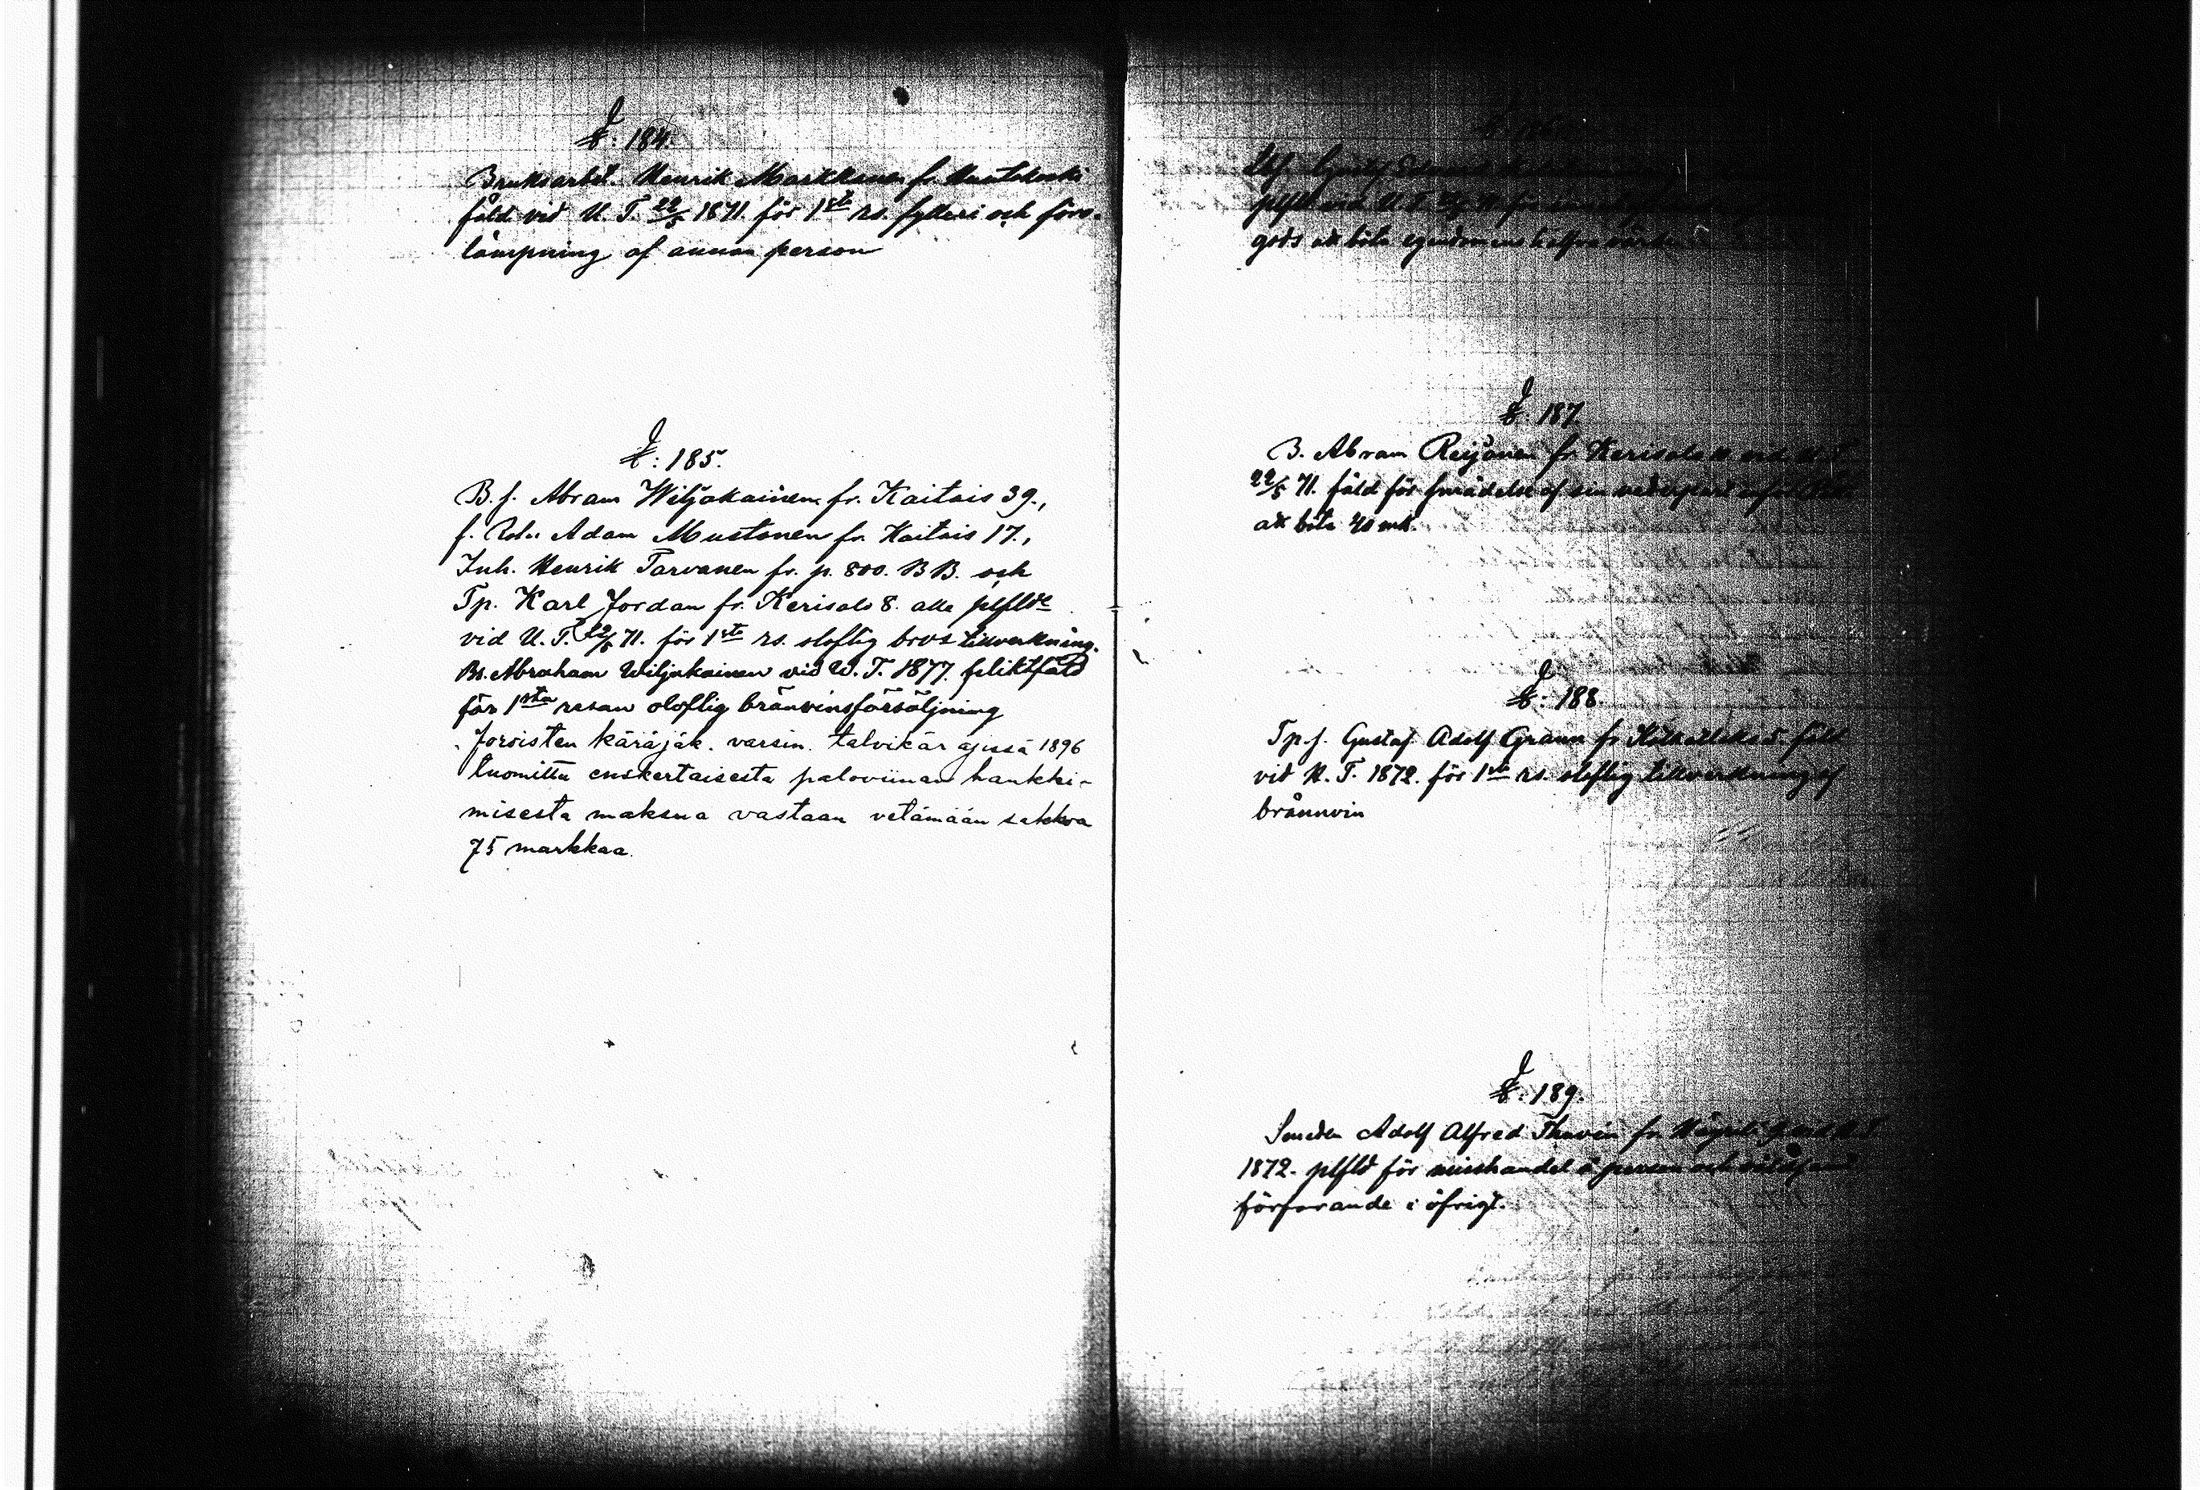 №: 184.
Bruksarbet. Henrik Markkanen fr.
fäld vid U. T. 22/5 1871. för 1sta rs. fylleri och förs-
lämpning af annan person
№: 185.
B. f. Abram Wiljakainen fr. Kaitais 39.,
f. Adam Mustonen fr. Kaitais 17.,
Inh. Henrik Tarvanen fr. p. 800. BB. och
Tp. Karl Jordan fr. Kerisalo 8. alla plflde
vid U. T. 22/5 71. för 1sta rs. oloflig brvs tillverkning.
Bs. Abraham Wiljakainen vid W. T. 1877. pliktfäld
för 1sta resan oloflig bränvinsförsäljning
Joroisten käräjäk. varsin. talvikär ajissä 1896
tuomittu enskertaisesta paloviinan hankki-
misesta maksua vastaan vetämään sakkoa
75 markkaa.
gods att böta egendomens
№: 187.
B. Abram Reijonen fr. Kerisalo vid U. T.
22/5 71. fäld för smädelse af sin vederpart
att böta 40 mk.
№: 188.
Tp. f. Gustaf Adolf Grann fr. 5. fäld
vid H. T. 1872. för 1sta rs. oloflig tillverkning af
brännvin
№: 189.
Smeden Adolf Alfred Thuvén fr.
1872. plfld för misshandel å person och
förfarande i öfrigt.